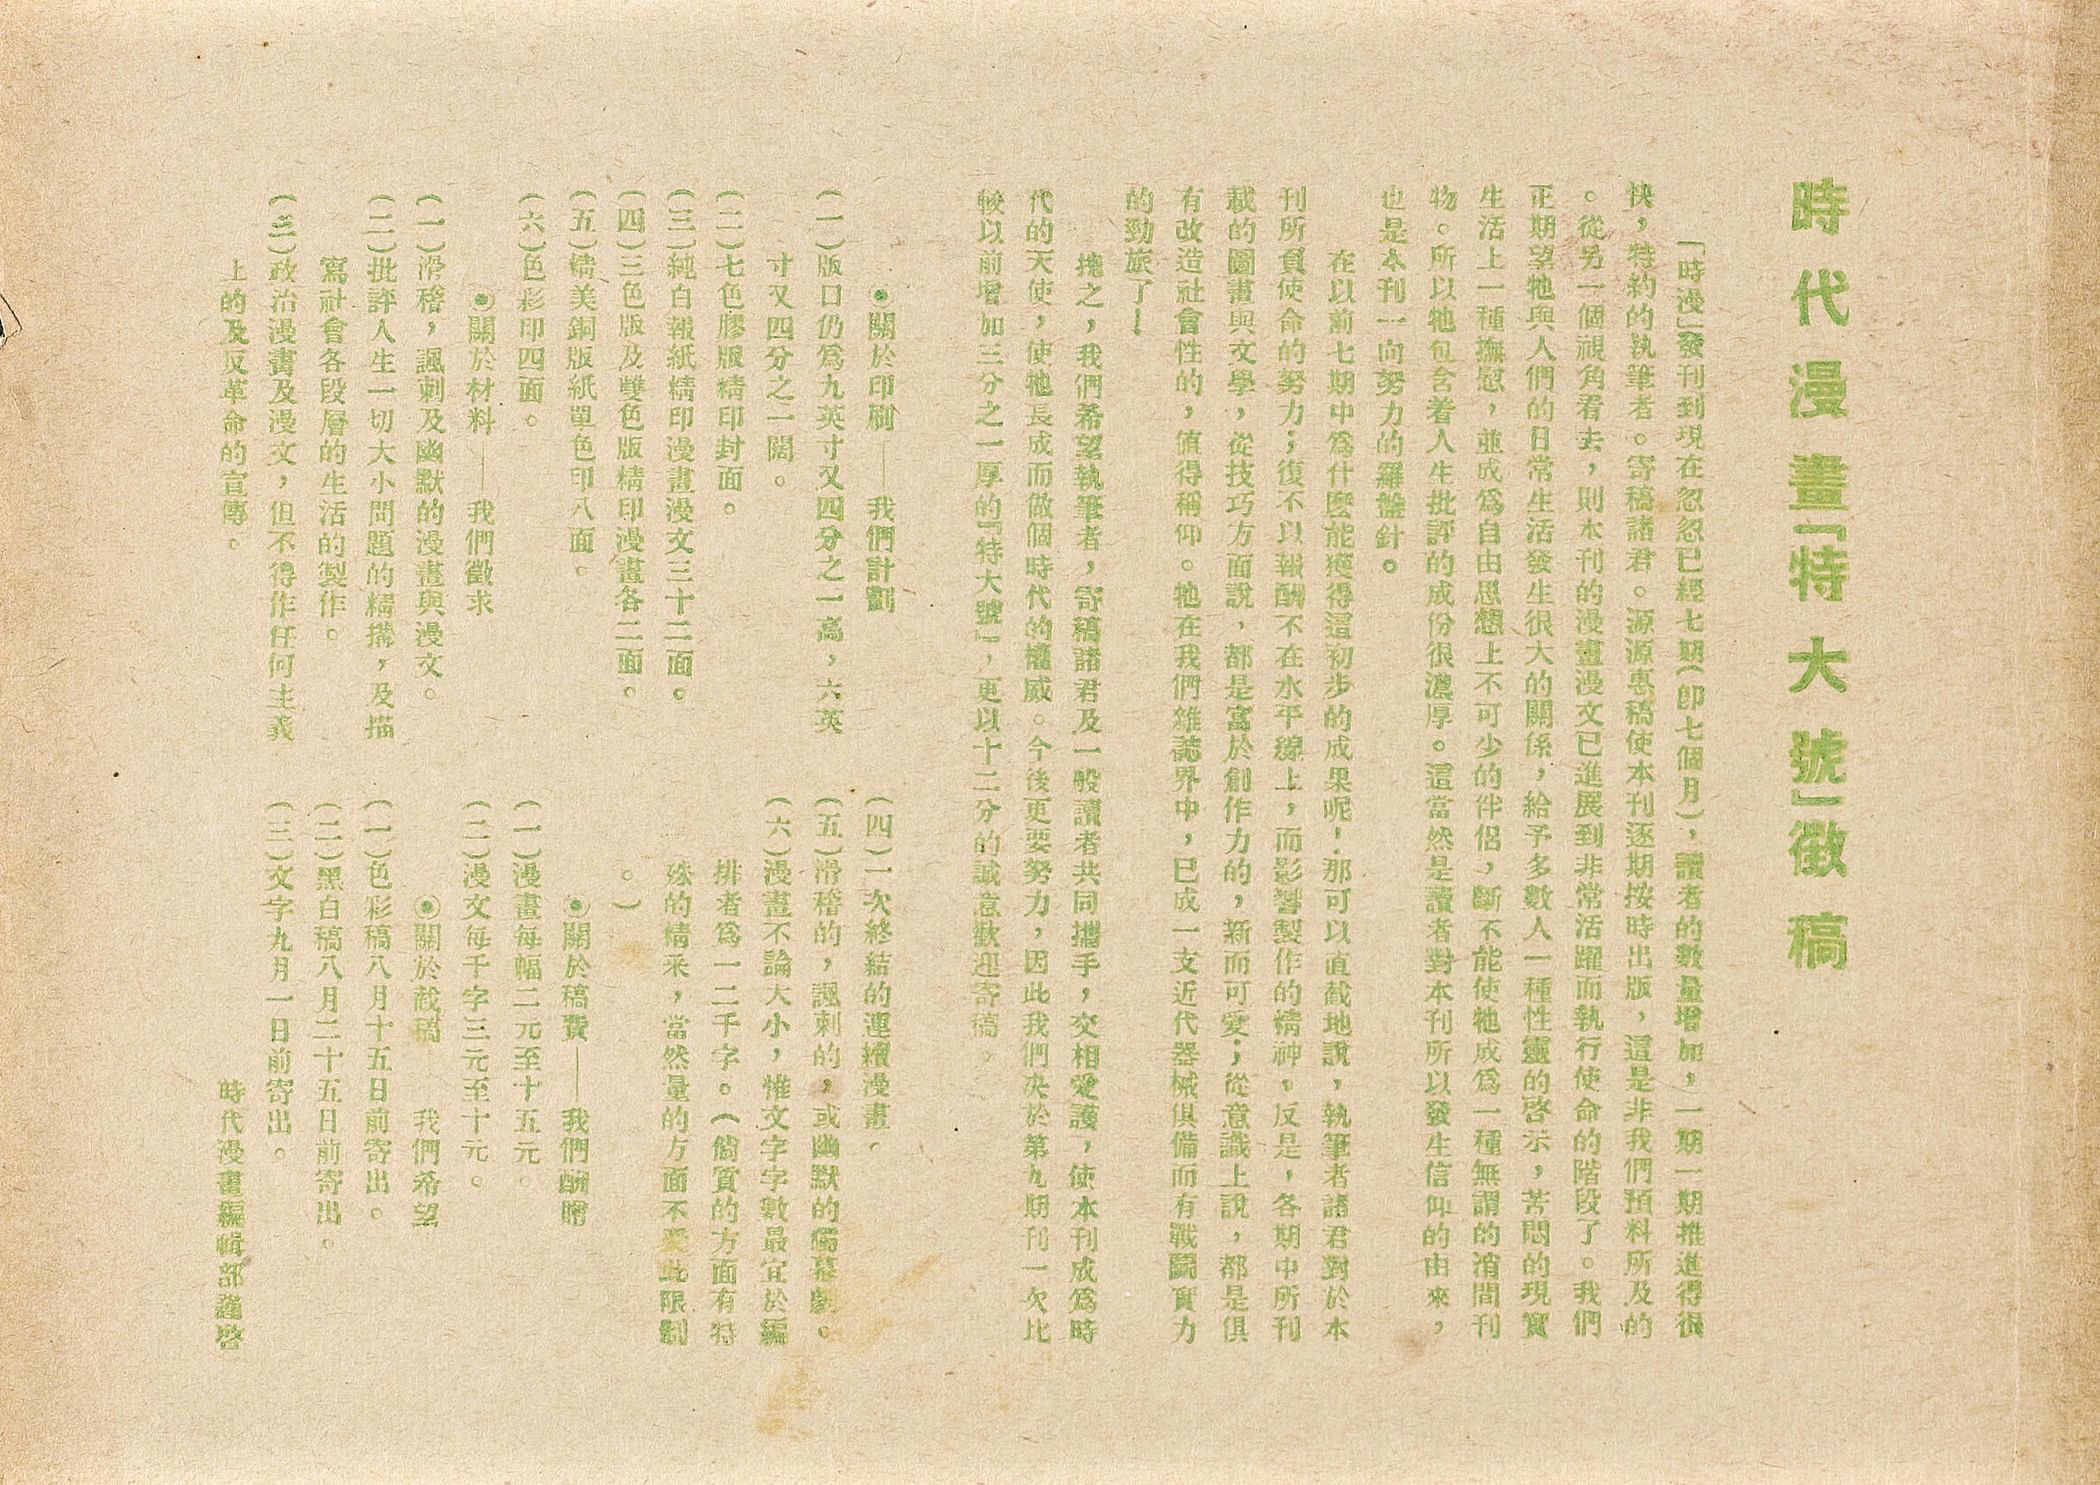 時代漫畫「特大號」徵稿
「時漫」發刊到現在忽忽已經七期(即七個月)，讀者的數量增加，一期一期推進得很
快，特約的執筆者。寄稿諸君。源源惠稿使本刊逐期按時出版，這是非我們預料所及的
。從另一個視角看去，則本刊的漫畫漫文已進展到非常活躍而執行使命的階段了。我們
正期望牠與人們的日常生活發生很大的關係，給予多數人一種性靈的啓示，苦悶的現實
生活上一種撫慰，並成爲自由思想上不可少的伴侶，斷不能使牠成爲一種無謂的消閒刊
物。所以牠包含着人生批評的成份很濃厚。這當然是讀者對本刊所以發生信仰的由來，
也是本刊一向努力的羅盤針。
在以前七期中爲什麼能獲得這初步的成果呢！那可以直截地說，執筆者諸君對於本
刊所負使命的努力；復不以報酬不在水平線上，而影響製作的精神，反是，各期中所刊
載的圖畫與文學，從技巧方面說，都是富於創作力的，新而可愛；從意識上說，都是俱
有改造社會性的，値得稱仰。牠在我們雜誌界中，已成一支近代器械俱備而有戰鬭實力
的勁旅了！
摠之，我們希望執筆者，寄稿諸君及一般讀者共同攜手，交相愛護，使本刊成爲時
代的天使，使牠長成而做個時代的權威。今後更要努力，因此我們决於第九期刊一次比
較以前增加三分之一厚的「特大號」，更以十二分的誠意歡迎寄稿。
◉關於印刷——我們計劃
(一)版口仍爲九英寸又四分之一高，六英
寸又四分之一闊。
(二)七色膠版精印封面。
(三)純白報紙精印漫畫漫文三十二面。
(四)三色版及雙色版精印漫畫各二面。
(五)精美銅版紙單色印八面。
(六)色彩印四面。
◉關於材料——我們徵求
(一)滑稽，諷刺及幽默的漫畫與漫文。
(二)批評人生一切大小問題的精搆，及描
寫社會各段層的生活的製作。
(三)政治漫畫及漫文，但不得作任何主義
上的及反革命的宣傳。
(四)一次終結的連續漫畫。
(五)滑稽的，諷刺的，或幽默的獨幕劇。
(六)漫畫不論大小，惟文字字數最宜於編
排者爲一二千字。(倘質的方面有特
殊的精采，當然量的方面不受此限制
。)
◉關於稿費——我們酬贈
(一)漫畫每幅二元至十五元。
(二)漫文每千字三元至十元。
◉關於截稿——我們希望
(一)色彩稿八月十五日前寄出。
(二)黑白稿八月二十五日前寄出。
(三)文字九月一日前寄出。
時代漫畫編輯部謹啓